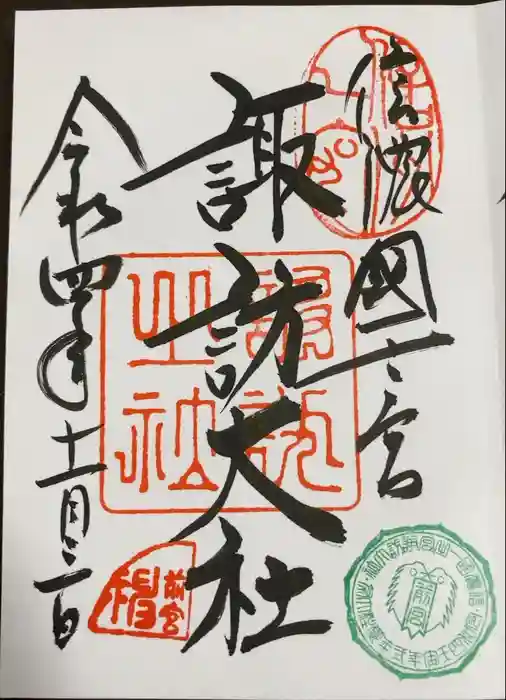 信濃國一之宮
諏訪大社
令和四年十一月三日
諏訪
之社
前宮
前宮